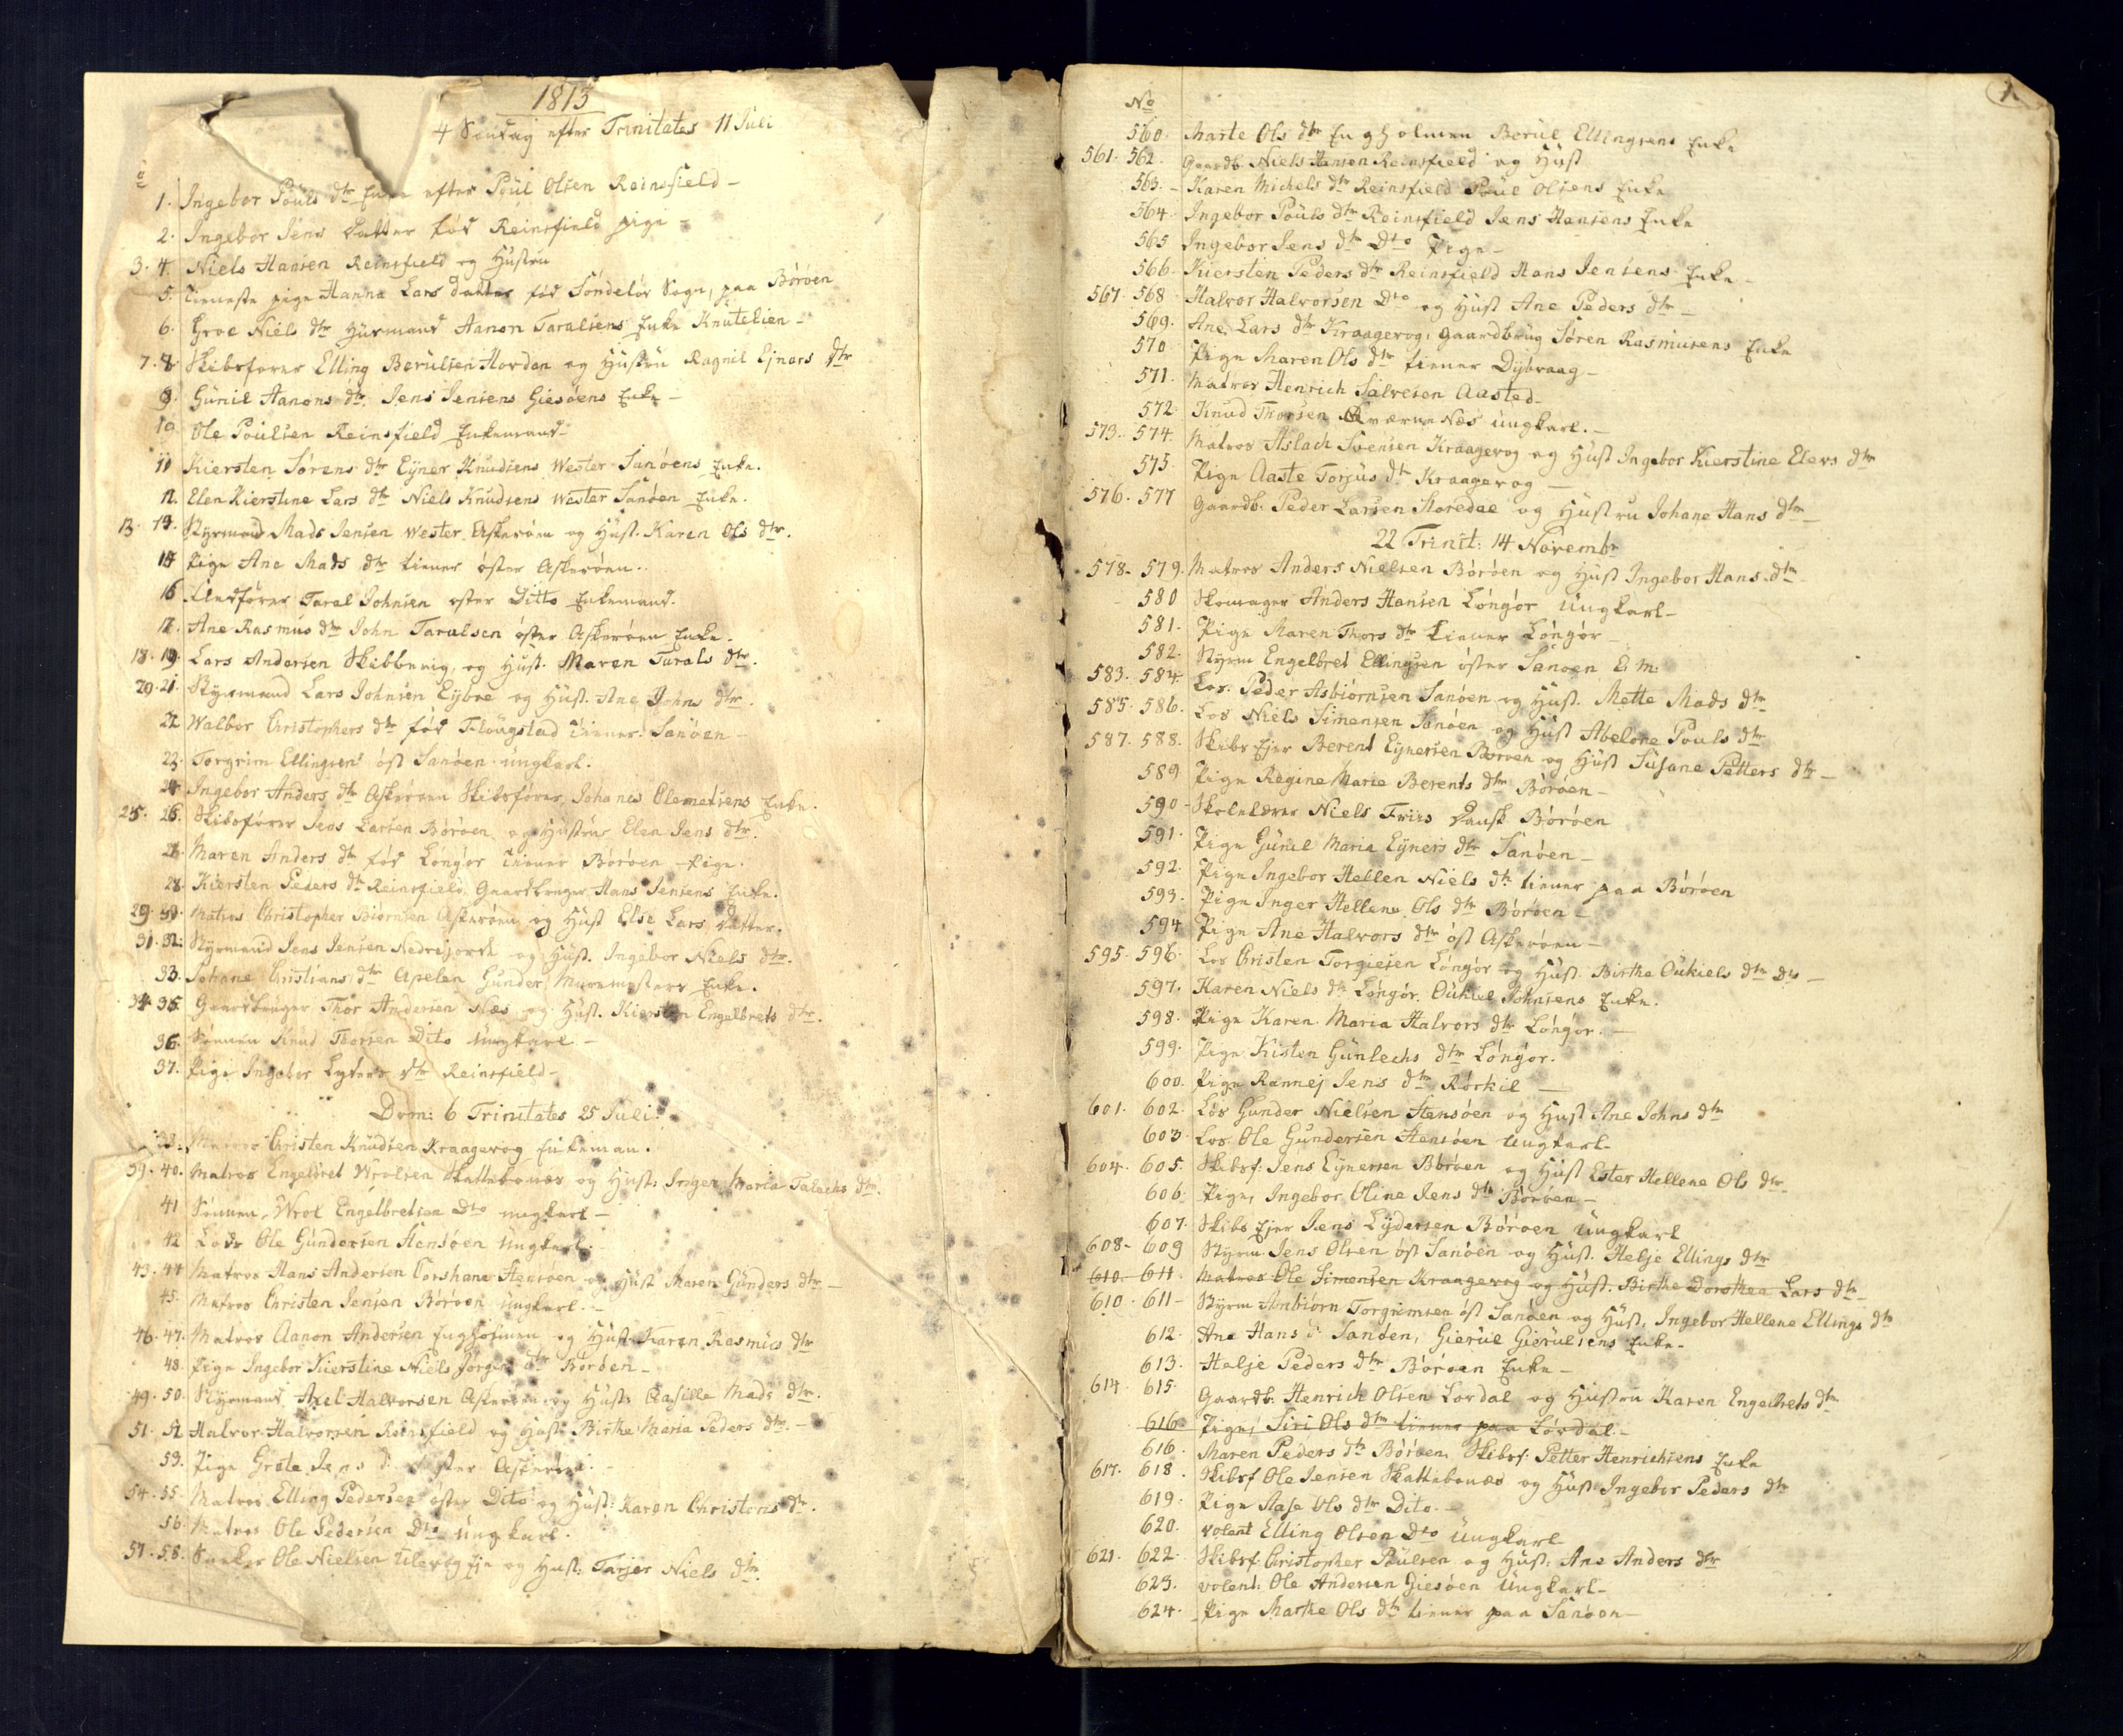 1813
4 Søndag efter Trinitates 11 Juli
1. Ingebor Pouls dtr Enke efter Poul Olsen Reinsfield -
2. Ingebor Jens Datter fød Reinsfield pige -
3. 4. Niels Hansen Reinsfield og Hustru
5. tieneste pige Hanna Lars datter fød Søndeløv Sogn, paa Børøen
6. Groe Niels dtr Huusmand Aanon Taralsens Enke Knutelien -
7. 8. Skibsfører Elling Berulsen Hordan og Hustru Ragnil Ejners dtr
9. Gunil Aanons dtr Jens Jensens Giesøens Enke -
10 Ole Poulsen Reinsfield Enkemand -
11 Kiersten Sørens dtr Eyner Knudsens Wester Sanøens Enke.
12. Elen Kierstine Lars dtr Niels Knudsens Wester Sanøen Enke.
13. 14. Styrmand Mads Jensen Wester Askerøen og Hust. Karen Ols dtr.
Pige Ane Mads dtr tiener øster Askerøen.
16 Taral Johnsen øster Ditto Enkemand.
17. Ane Rasmus dtr John Taralsen øster Askerøen Enke.
18. 19. Lars Andersen Skibbevig, og Hust. Maren Tarals dtr.
20. 21. Styrmand Lars Johnsen Eybve og Hust. Ane Johns dtr.
22 Walbor Christophers dtr fød Flougstad tiener Sanøen -
23. Torgrim Ellingsen øst Sanøen ungkarl.
24 Ingebor Anders dtr Askerøen Skibsfører Johanes Clemetsens Enke.
25. 26. Skibsfører Jens Larsen Børøen og Hustrue Elen Jens dtr.
Maren Anders dtr fød Longør tiener Børøen Pige.
28. Kiersten Peders dtr Reinsfield, Gaardbruger Hans Jensens Enke.
29. 30. Matros Christopher Biørnsen Askerøen og Hust Else Lars Datter.
31. 32. Styrmand Jens Jensen Nedrejordt og Hust. Ingebor Niels dtr.
33. Johane Christians dtr Apelen Gunder Muremesters Enke.
34 35 Gaardbruger Thor Andersen Næs og Hust. Kiersten Engelbrets dtr.
36. Sønnen Knud Thorsen Dito Ungkarl -
37. Pige Ingebor Lyders dtr Reinsfield -
Dom: 6 Trinitates 25 Juli.
38. Matros Christen Knudsen Kraagevog Enkeman.
39. 40. Matros Engelbret Wrolsen Skattebonæs og Hust: Inger Maria Talachs dtr.
41 Sønnen, Wrol Engelbretsen Dto ungkarl -
42 Lods Ole Gundersen Stensøen Ungkarl.
43. 44 Matros Hans Andersen Corshavn Stensøen og Hust Maren Gunders dtr -
45. Matros Christen Jensen Børøen ungkarl. -
46. 47. Matros Aanon Andersen Engholmen og Hust. Karen Rasmus dtr
48. Pige Ingebor Kierstine Niels Jørgen dtr Børøen -
49. 50. Styrmand Axel Halvorsen Askerøen og Hust: Aasille Mads dtr.
51. 52 Halvor Halvorsen Reinsfield og Hust: Birthe Maria Peders dtr. -
53. Pige Grete Jens d øster Askerøen. -
54. 55. Matros Elling Pedersen øster Dito og Hust: Karen Christens dtr.
56. Matros Ole Pedersen Dto Ungkarl.
57. 58. Ole Nielsen og Hust: Tarjer Niels dtr.
1.
No
560. Marte Ols dtr Engholmen Berul Ellingsens Enke
561. 562. Gaardb. Niels Hansen Reinsfield og Hust
563. - Karen Michels dtr Reinsfield Poul Olsens Enke
564. Ingebor Pouls dtr Reinsfield Jens Hansens Enke
565 Ingebor Jens dtr Dto Pige -
566. Kiersten Peders dtr Reinsfield Hans Jensens Enke -
567. 568 Halvor Halvorsen Dto og Hust Ane Peders dtr -
569. Ane Lars dtr Kraagevog, gaardbrug Søren Rasmusens Enke
570 Pige Maren Ols dtr tiener Dybvaag -
571. Matros Henrich Salvesen Aasted -
572. Knud Thorsen Qværne Næs ungkarl. -
573. 574. Matros Aslach Svensen Kraagevog og Hust Ingebor Kierstine Elevs dtr
575. Pige Aaste Torjus dtr Kraagevog -
576. 577 Gaardb. Peder Larsen Storedae og Hustru Johane Hans dtr -
22 Trinit: 14 Novembr
578. 579. Matros Anders Nielsen Børøen og Hust Ingebor Hans dtr
580 Skomager Anders Hansen Longør Ungkarl -
581. Pige Maren Thors dtr tiener Longør -
582. Styrm Engelbret Ellingsen øster Sanøen E. M.
583. 584. Los. Peder Asbiørnsen Sanøen og Hust. Mette Mads dtr
585. 586. Los Niels Simonsen Sanøen og Hust Abelone Pouls dtr
587. 588. Skibs Ejer Berent Eynersen Børøen og Hust Susane Petters dtr -
589 Pige Regine Marie Berents dtr Børøen -
590 - Skolelærer Niels Friis Dansk Børøen
591. Pige Gunil Maria Eyners dtr Sanøen -
592. Pige Ingebor Hellen Niels dtr tiener paa Børøen
593. Pige Inger Hellene Ols dtr Børøen -
594 Pige Ane Halvors dtr øst Askerøen -
595. 596. Los Christen Torgiesen Longør og Hust. Birthe Oukiels dtr do -
597. Karen Niels dtr Longør. Oukiel Johnsens Enke.
598. Pige Karen Maria Halvors dtr Longør. -
599. Pige Kisten Gunlechs dtr Longør.
600. Pige Rannej Jens dtr Rørkil -
601. 602. Los Gunder Nielsen Stensøen og Hust Ane Johns dtr
603. Los Ole Gundersen Stensøen Ungkarl -
604. 605. Skibsf: Jens Eynersen Børøen og Hust Ester Hellene Ols dtr
606. Pige, Ingebor Oline Jens dtr Børøen -
607. Skibs Ejer Jens Lydersen Børøen Ungkarl
608. 609 Styrm. Jens Olsen øst Sanøen og Hust. Helje Ellings dtr
610. 611. Matros Ole Simonsen Kraagevog og Hust. Birthe Dorothea Lars dtr -
610. 611 - Styrm Anbiørn Torgrimsen øst Sanøen og Hust. Ingebor Hellene Ellings dtr
612. Ane Hans d Sanøen, Gierul Gierulsens Enke -
613. Helje Peders dtr Børøen Enke -
614 615. Gaardb. Henrich Olsen Lordal og Hustru Karen Engelbrets dtr
616 Pige, Siri Ols dtr tiener paa Lørdal -
616. Maren Peders dtr Børøen, Skibsf. Petter Henrichsens Enke
617. 618. Skibsf Ole Jensen Skattebonæs og Hust: Ingebor Peders dtr
619. Pige Aase Ols dtr Dito. -
620. volent Elling Olsen Dto Ungkarl
621. 622. Skibsf. Christopher Poulsen og Hust: Ane Anders dtr
623. volent: Ole Andersen Giesøen Ungkarl -
624. Pige Marthe Ols dtr tiener paa Sanøen -